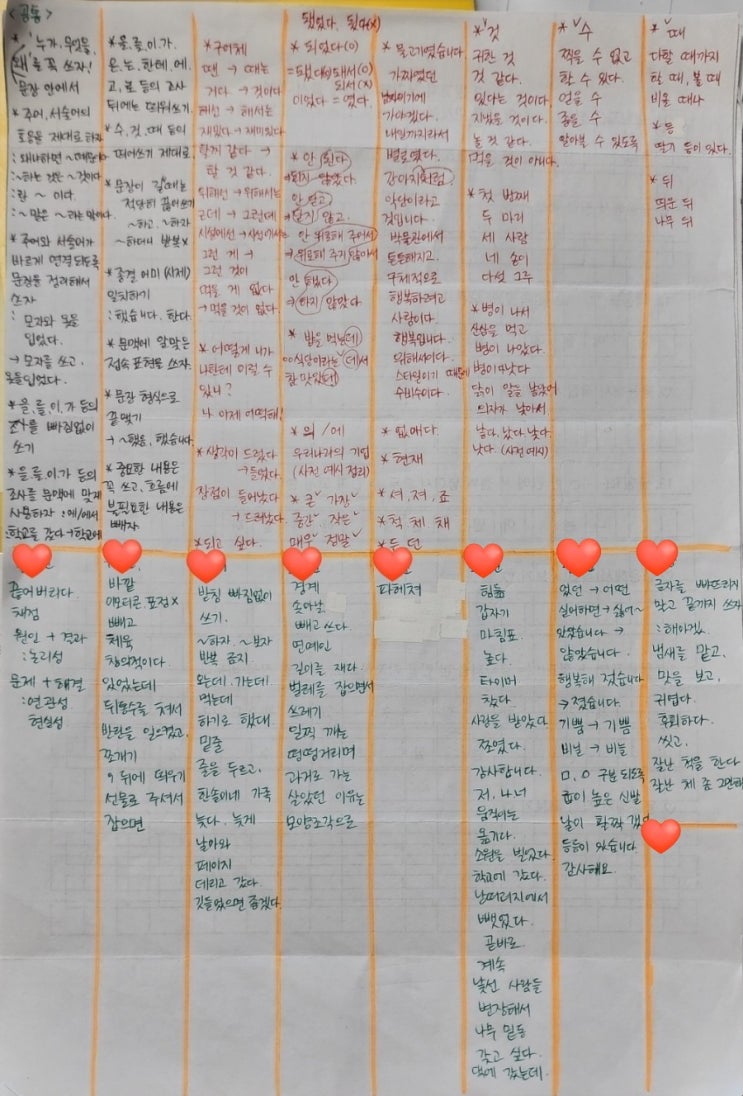 <공통>
* '누가, 무엇을,
왜'를 꼭 쓰자!
문장 안에서
* 주어, 서술어의
호응을 제대로 하자
: 왜냐하면 ~때문이다
: ~하는 것은 ~것이다
: 란 ~ 이다.
: ~ 말은 ~라는 말이다.
* 주어와 서술어가
바르게 연결되도록
문장을 정리해서
쓰자
: 모자와 옷을
입었다.
→ 모자를 쓰고,
옷을 입었다.
* 을, 를, 이, 가 등의
조사를 빠짐없이
쓰기
* 을, 를, 이, 가 등의
조사를 문맥에 맞게
사용하자 : 에/에서
: 학교를 갔다 → 학교에
* 을, 를, 이, 가,
은, 는, 한테, 에,
고, 로 등의 조사
뒤에는 띄워쓰기
* 수, 것, 때 등의
띄어쓰기 제대로,
* 문장이 길 때는
적당히 끊어쓰기
~하고, ~하자
~하더니 반복 x
* 종결 어미 (시제)
일치하기
: 했습니다. 한다.
* 문맥에 알맞은
접속 표현을 쓰자.
* 문장 형식으로
끝맺기
→ ~했음, 했습니다.
* 중요한 내용은
꼭 쓰고, 흐름에
불필요한 내용은
빼자
* 구어체
땐 → 때는
거다 → 것이다
해선 → 해서는
재밌다 → 재미있다
할게 같다 →
할 것 같다.
위해선 → 위해서는
근데 → 그런데
시상에선 → 시상에서는
그런 게 →
그런 것이
먹을 게 없다
→ 먹을 것이 없다.
* 어떻게 니가
나한테 이럴 수
있니?
나 이제 어떡해!
* 생각이 드렀다
→ 들었다.
장점이 들어났다
→ 드러났다.
* 되고 싶다.
됐었다. 됬다(x)
* 되었다 (o)
= 됐다 (o) 돼서 (o)
되서 (x)
이었다 = 였다.
* 안 된다
→ 되지 않았다.
안 닫고
→ 닫지 않고.
안 위로해 주어서
→ 위로해 주지 않아서
안 했다
→ 하지 않았다
* 밥을 먹는데
○○식당이라는 데서
참 맛있데
* 의 / 에
우리나라의 기업
(사전 예시 정리)
* 큰 가장
중간 작은
매우 정말
* 물고기였습니다.
가짜였던
남자이기에
가야겠다.
내일까지라서
별로였다.
강아지처럼.
악단이라고
것입니다.
박물관에서
튼튼해지고.
구체적으로
행복하려고
사람이다.
행복합니다.
위해서이다.
스타일이기 때문에
수비수이다.
* 없애다.
* 현재
* 셔, 져, 죠
* 척, 체, 채
* 든, 던
* 것
귀한 것
것 같다.
있다는 것이다.
지났을 것이다.
놀 것 같다.
먹을 것이 아니다.
* 첫 번째
두 마리
세 사람
네 송이
다섯 그루
* 병이 나서
산삼을 먹고
병이 나았다.
병이 낫다
닭이 알을 낳았어
의자가 낮아서
날다. 났다. 낮다.
낫다. (사전 예시)
* 수
찍을 수 없고
할 수 있다.
얻을 수
줄을 수
알아볼 수 있도록
* 때
다할 때까지
탈 때, 볼 때
비올 때나
* 등
딸기 등이 있다.
* 뒤
띄운 뒤
나무 뒤
끊어버리다.
채점
원인 + 결과
: 논리성
문제 + 해결
: 연관성
현실성
바깥
이모티콘. 표정 x
빼고
체육
창의적이다.
있었는데
뒤통수를 쳐서
반란을 일으켰고,
쪼개기
9 뒤에 띄우기
선물로 주셔서
잡으면
받침 빠짐없이
쓰기.
~하자. ~보자
반복 금지
왔는데. 가는데.
먹는데
하기로 했대.
밑줄
줄을 두르고,
한송이네 가족
늦다. 늦게
날아와
페이지
데리고 갔다.
깃들었으면 좋겠다.
경계
솟아난
빼고 쓰다.
연예인
길이를 재다.
벌레를 잡으면서
쓰레기
일찍 깨는
떵떵거리며
과거로 가는
살았던 이유는
모양조각으로
파헤쳐
갑자기
마침표
높다.
타이머
찼다.
사랑을 받았다.
쪄였다.
감사합니다.
저, 나너
움직이는
옮기다.
소원을 빌었다.
학교에 갔다.
낭떠러지에서
빼앗았다.
곧바로.
계속
낯선 사람들
변장해서
나무 밑동
갖고 싶다.
댁에 갔는데.
었던 → 어떤
실어하면 → 싫어~
않았습니다 →
않았습니다.
행복해 졌습니다
→ 졌습니다.
기쁨 → 기쁨
비닐 → 비늘
ㅁ, ㅇ 구분되도록
굽이 높은 신발
날이 활짝 갰다
등등이 와습니다
감사해요.
글자를 빠뜨리지
말고 끝까지 쓰자
: 해야겠.
냄새를 맡고,
맛을 보고,
귀엽다.
후회하다.
씻고.
잘난 척을 한다
잘난 체 좀 그만해